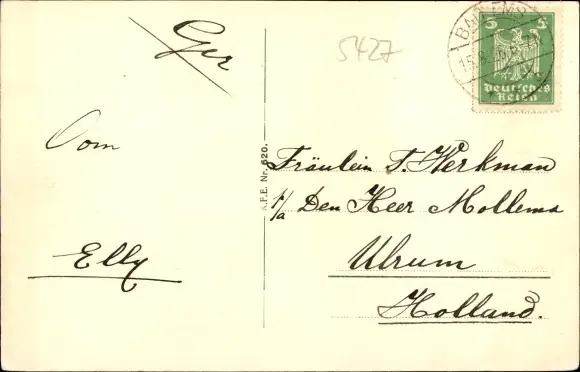 Ger
5427
5 5
BAD EMS
Deutsches
Reich
Oom
Elly
A.F.E. Nr. 520.
Fräulein T. Werkman
p/a Den Heer Mollema
Ulrum
Holland.